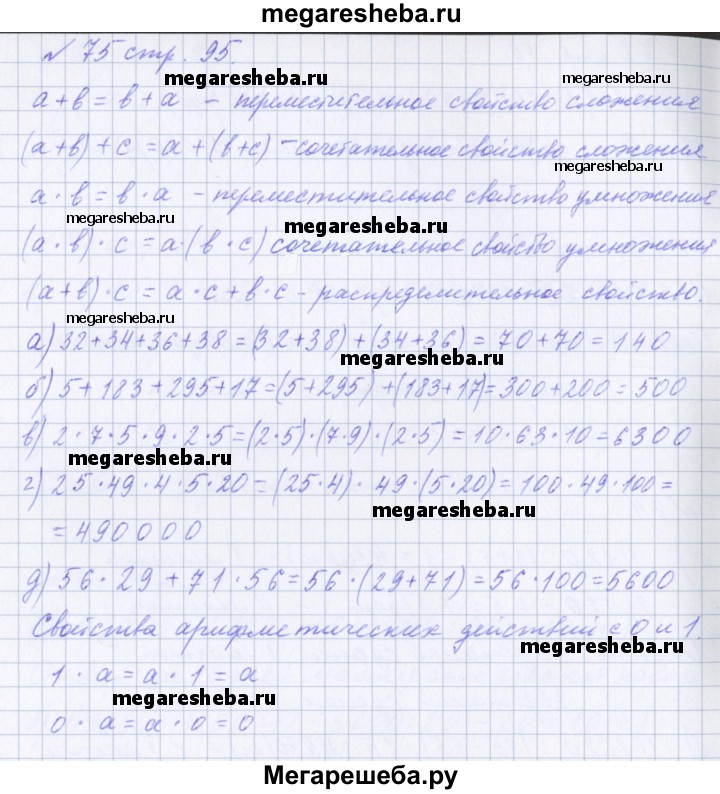 megaresheba.ru
№ 75 стр. 95.
megaresheba.ru
megaresheba.ru
a + b = b + a – переместительное свойство сложения
(a+b) + c = a + (b+c) – сочетательное свойство сложения
megaresheba.ru
a · b = b · a – переместительное свойство умножение
megaresheba.ru
megaresheba.ru
(a · b) · c = a · (b · c) сочетательное свойство умножения
(a+b) · c = a · c + b · c – распределительное свойство.
megaresheba.ru
а) 32+34+36+38 = (32+38) + (34+36) = 70+70 = 140
megaresheba.ru
б) 5+183+295+17=(5+295)+(183+17)=300+200=500
в) 2·7·5·9·2·5=(2·5)·(7·9)·(2·5)=10·63·10=6300
megaresheba.ru
г) 25·49·4·5·20=(25·4)·49·(5·20)=100·49·100=
megaresheba.ru
= 490000
д) 56·29+71·56=56·(29+71)=56·100=5600
Свойства арифметических действий с 0 и 1.
megaresheba.ru
1 · a = a · 1 = a
megaresheba.ru
0 · a = a · 0 = 0
Мегарешеба.ру